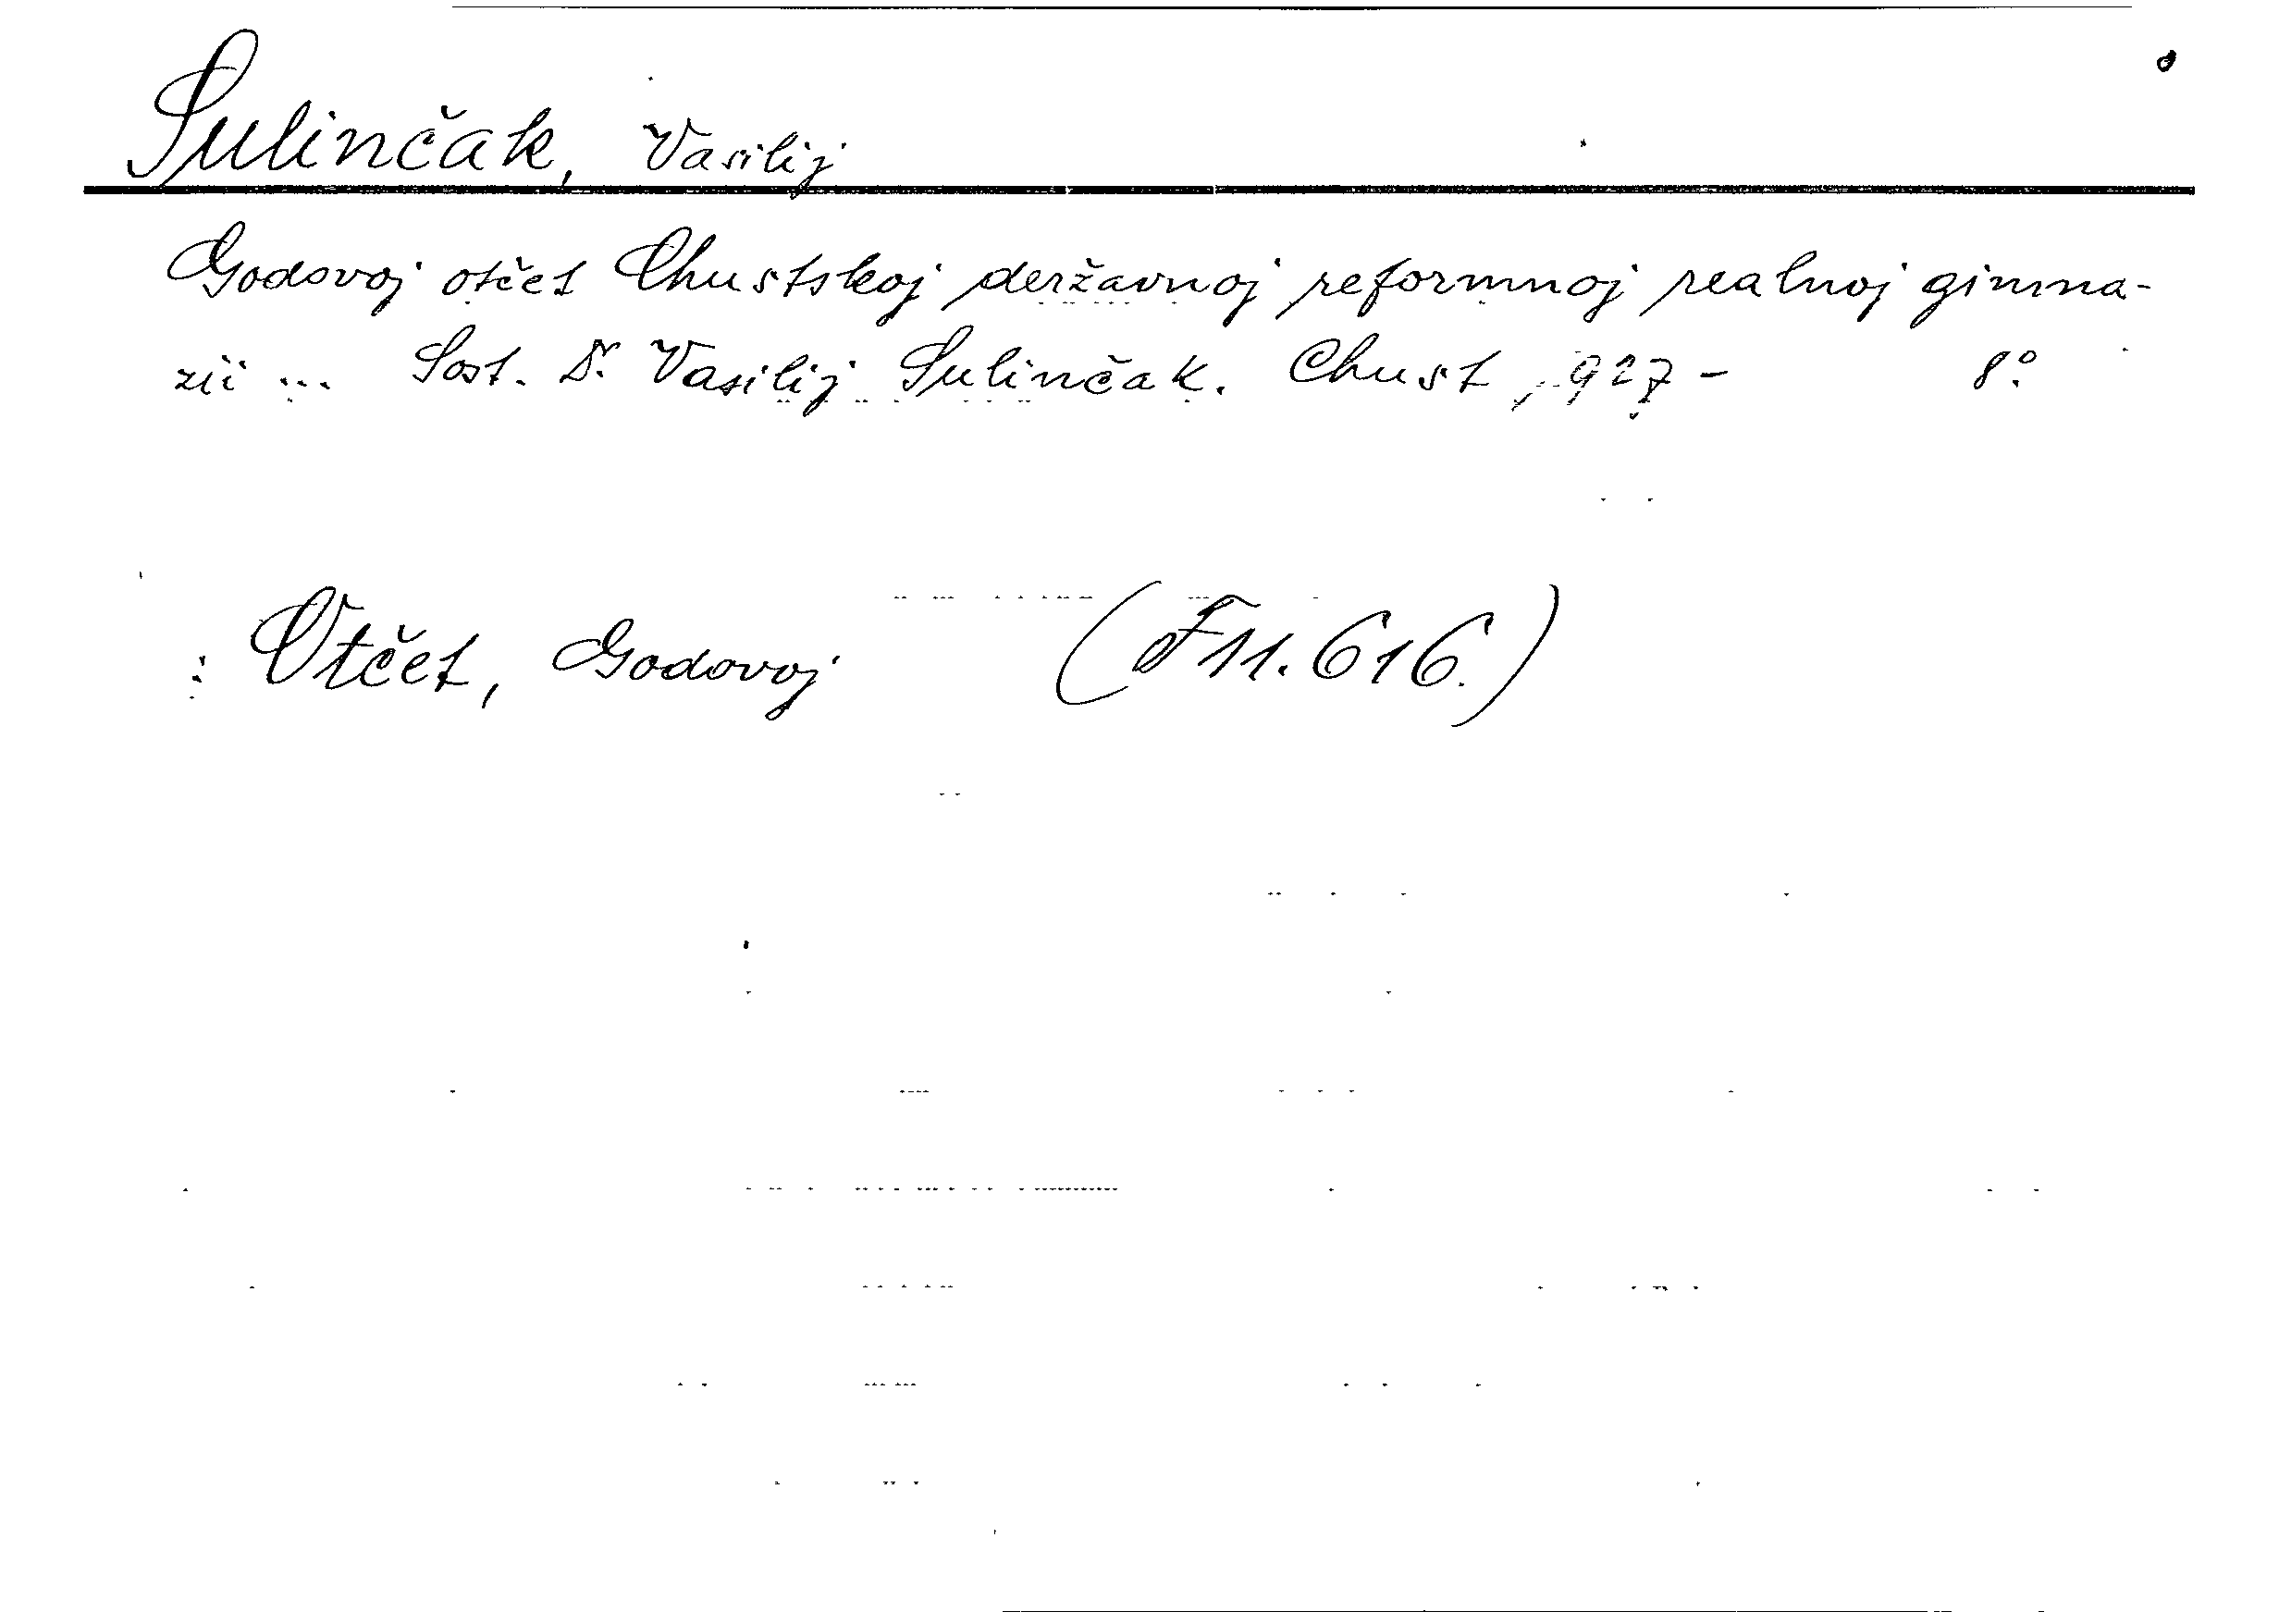 Sulinčak, Vasilij
Godovoj otčet Chustskoj deržavnoj reformnoj realnoj gimna-
zii ... Sost. Dr. Vasilij Sulinčak. Chust, 1927 - 8°.
: Otčet, Godovoj (F 11.616.)